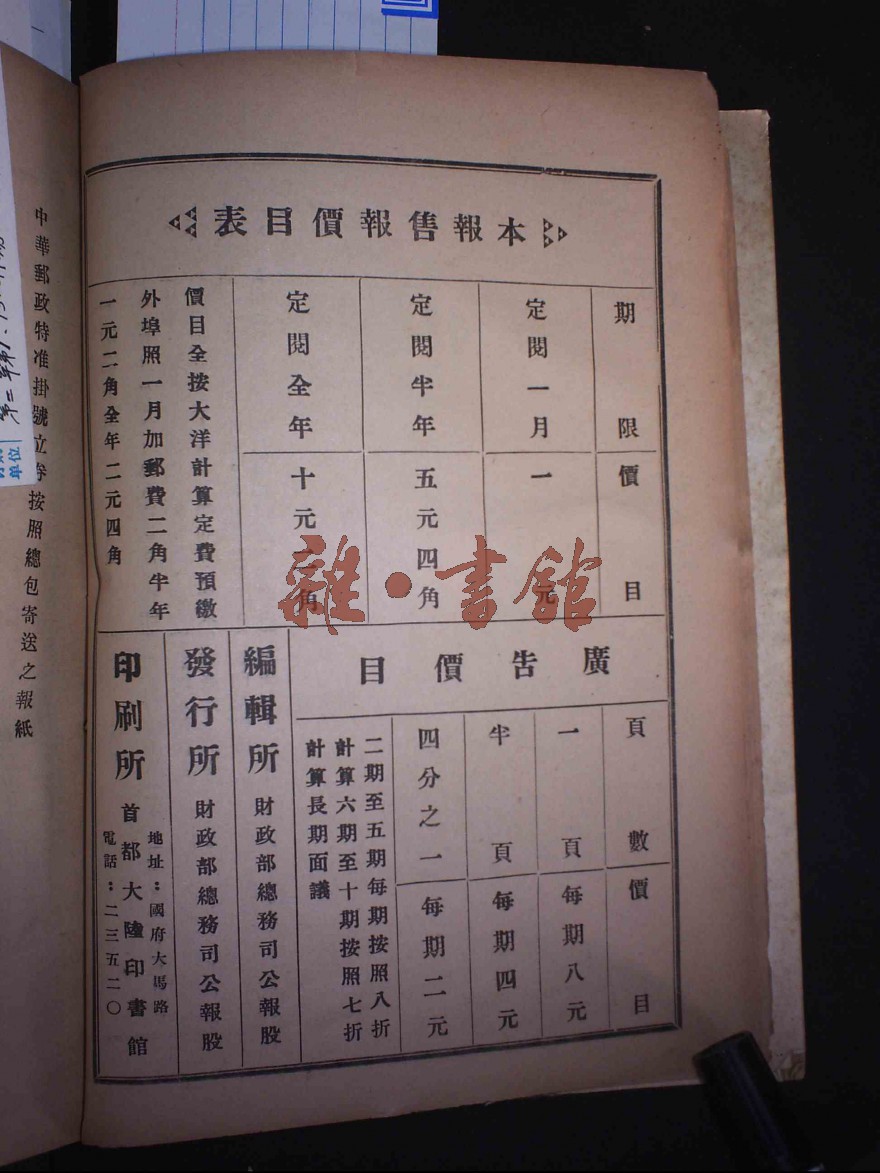 本報售報價目表
期限
價目
定閱一月
一元
定閱半年
五元四角
定閱全年
十元 角
價目全按大洋計算定費預繳
外埠照一月加郵費二角半年
一元二角全年二元四角
廣告價目
頁數
價目
一頁
每期八元
半頁
每期四元
四分之一
每期二元
二期至五期每期按照八折
計算六期至十期按照七折
計算長期面議
編輯所 財政部總務司公報股
發行所 財政部總務司公報股
印刷所 首都大陸印書館
地址：國府大馬路
電話：二三五二〇
中華郵政特准掛號立券按照總包寄送之報紙
雜·書館
單位